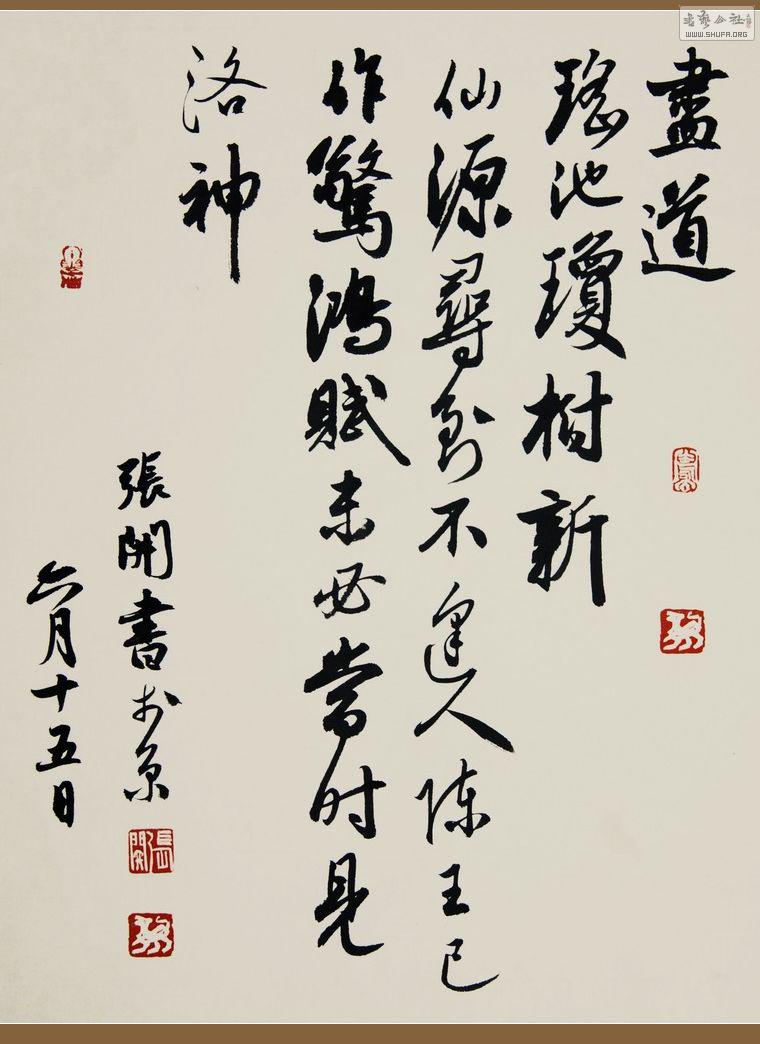 盡道
瑤池瓊樹新
仙源尋到不逢人陳王已
作驚鴻賦未必當時見
洛神
張開書於京
六月十五日
張開
書藝公社
WWW.SHUFA.ORG